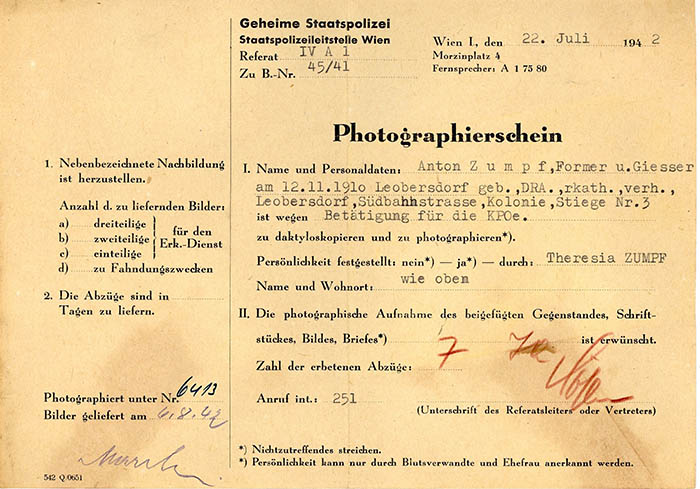 Geheime Staatspolizei
Staatspolizeileitstelle Wien
Referat IV A 1
Zu B.-Nr. 45/41
Wien I., den 22. Juli 1942
Morzinplatz 4
Fernsprecher: A 1 75 80
Photographierschein
1. Nebenbezeichnete Nachbildung
ist herzustellen.
Anzahl d. zu liefernden Bilder:
a) dreiteilige
b) zweiteilige
c) einteilige
für den
Erk.-Dienst
d) zu Fahndungszwecken
2. Die Abzüge sind in
Tagen zu liefern.
Photographiert unter Nr. 6413
Bilder geliefert am 6.8.42
542 Q/0651
I. Name und Personaldaten: Anton Z u m p f,Former u.Giesser
am 12.11.1910 Leobersdorf geb.,DRA.,rkath.,verh.,
Leobersdorf,Südbahnstrasse,Kolonie,Stiege Nr.3
ist wegen Betätigung für die KPOe.
zu daktyloskopieren und zu photographieren*).
Persönlichkeit festgestellt: nein*) — ja*) — durch: Theresia ZUMPF
Name und Wohnort: wie oben
II. Die photographische Aufnahme des beigefügten Gegenstandes, Schrift-
stückes, Bildes, Briefes*) ist erwünscht.
Zahl der erbetenen Abzüge: 7
Anruf int.: 251
(Unterschrift des Referatsleiters oder Vertreters)
*) Nichtzutreffendes streichen.
*) Persönlichkeit kann nur durch Blutsverwandte und Ehefrau anerkannt werden.